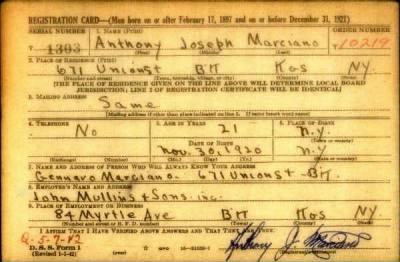 REGISTRATION CARD—(Men born on or after February 17, 1897 and on or before December 31, 1921)
SERIAL NUMBER 1. NAME (Print) ORDER NUMBER
1303 Anthony Joseph Marciano 10219
(First) (Middle) (Last)
2. PLACE OF RESIDENCE (Print)
671 Union St BK Kos NY.
(Number and street) (Town, township, village, or city) (County) (State)
[THE PLACE OF RESIDENCE GIVEN ON THE LINE ABOVE WILL DETERMINE LOCAL BOARD
JURISDICTION; LINE 2 OF REGISTRATION CERTIFICATE WILL BE IDENTICAL]
3. MAILING ADDRESS
Same
[Mailing address if other than place indicated on line 2. If same insert word same]
4. TELEPHONE 5. AGE IN YEARS 6. PLACE OF BIRTH
No 21 N.Y.
DATE OF BIRTH (Town or county)
Nov. 30, 1920 N.Y.
(Mo.) (Day) (Yr.) (State or country)
7. NAME AND ADDRESS OF PERSON WHO WILL ALWAYS KNOW YOUR ADDRESS
Gennaro Marciano - 671 Union St - BK.
8. EMPLOYER'S NAME AND ADDRESS
John Mullins & Sons. inc.
9. PLACE OF EMPLOYMENT OR BUSINESS
84 Myrtle Ave BK Kos NY.
(Number and street or R. F. D. number) (Town) (County) (State)
I AFFIRM THAT I HAVE VERIFIED ABOVE ANSWERS AND THAT THEY ARE TRUE.
D. S. S. Form 1
(Revised 1-1-42) Anthony J. Marciano